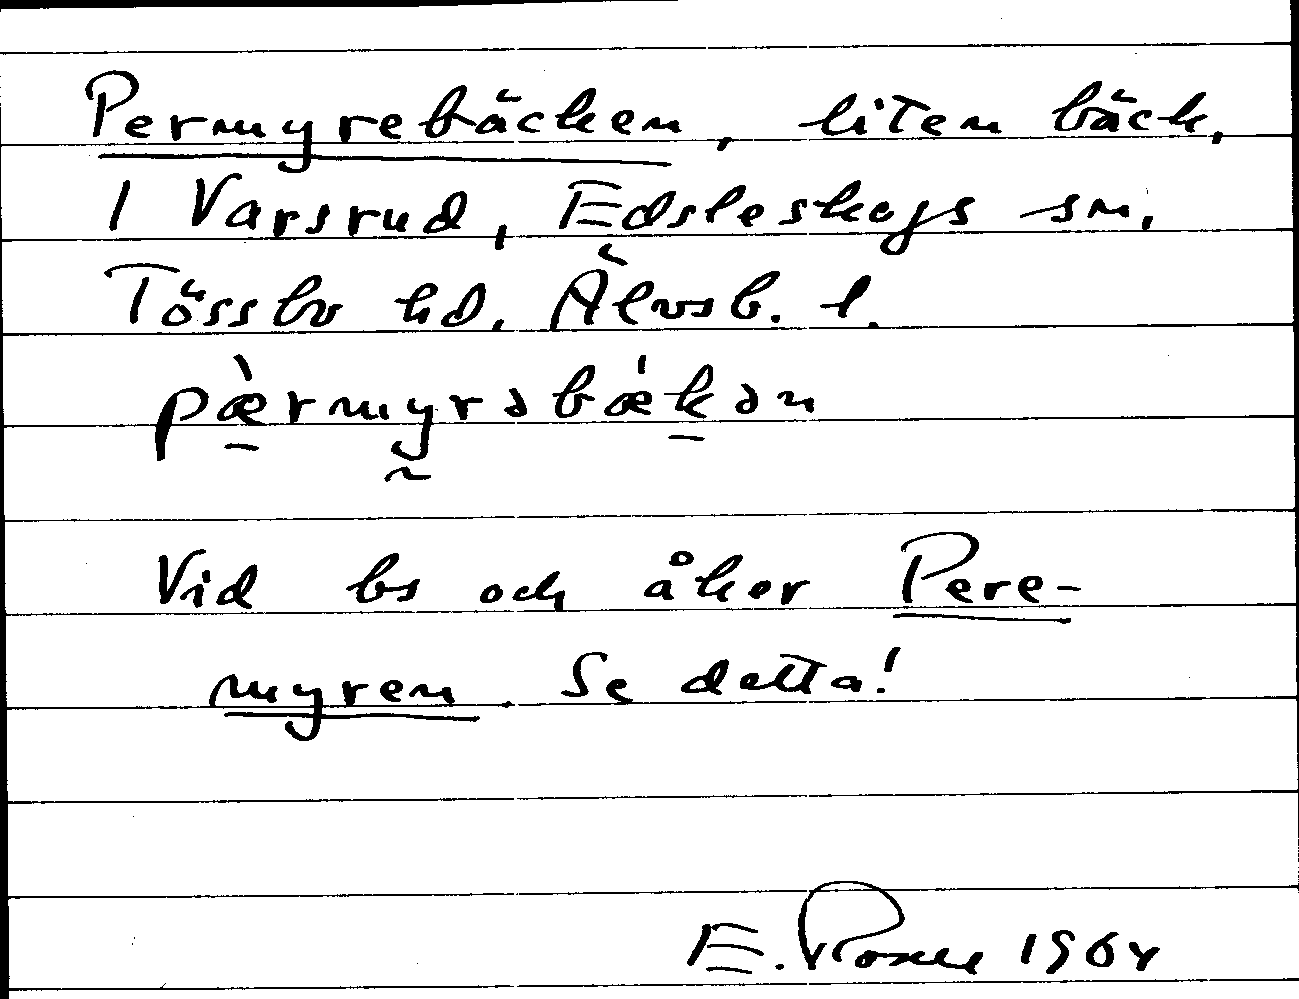 Permyrebäcken, liten bäck,
i Varsrud, Edsleskogs sn,
Tössbo hd, Älvsb. l.
pæ̀rmyrəbǽkən
Vid bs och åker Pere-
myren. Se detta!
E. 1964